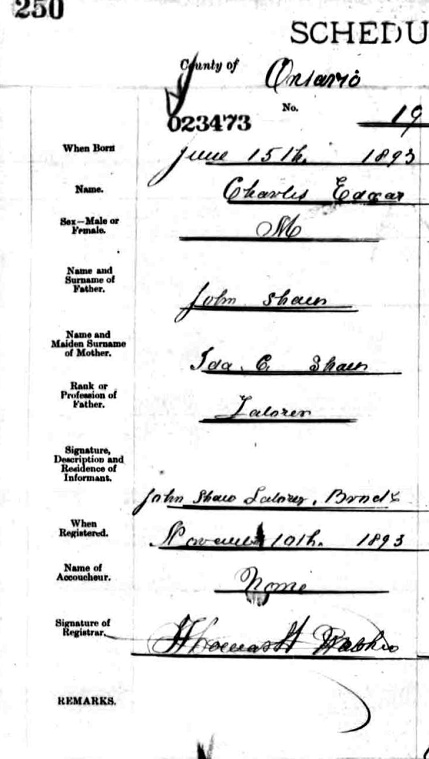 250
SCHEDU
County of Ontario
023473
No. 19
When Born June 15th. 1893
Name. Charles Edgar
Sex—Male or
Female. M
Name and
Surname of
Father. John Shaw
Name and
Maiden Surname
of Mother. Ida. E. Shaw
Rank or
Profession of
Father. Laborer
Signature,
Description and
Residence of
Informant.
John Shaw Laborer, Brock
When
Registered. November 10th. 1893
Name of
Accoucheur. None
Signature of
Registrar. Thomas H
REMARKS.